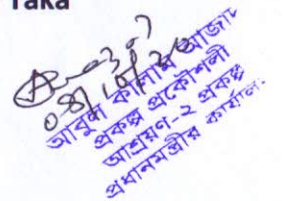 Taka
08/10/20
আবুল কালাম আজাদ
প্রকল্প প্রকৌশলী
আশ্রয়ণ-২ প্রকল্প
প্রধানমন্ত্রীর কার্যালয়